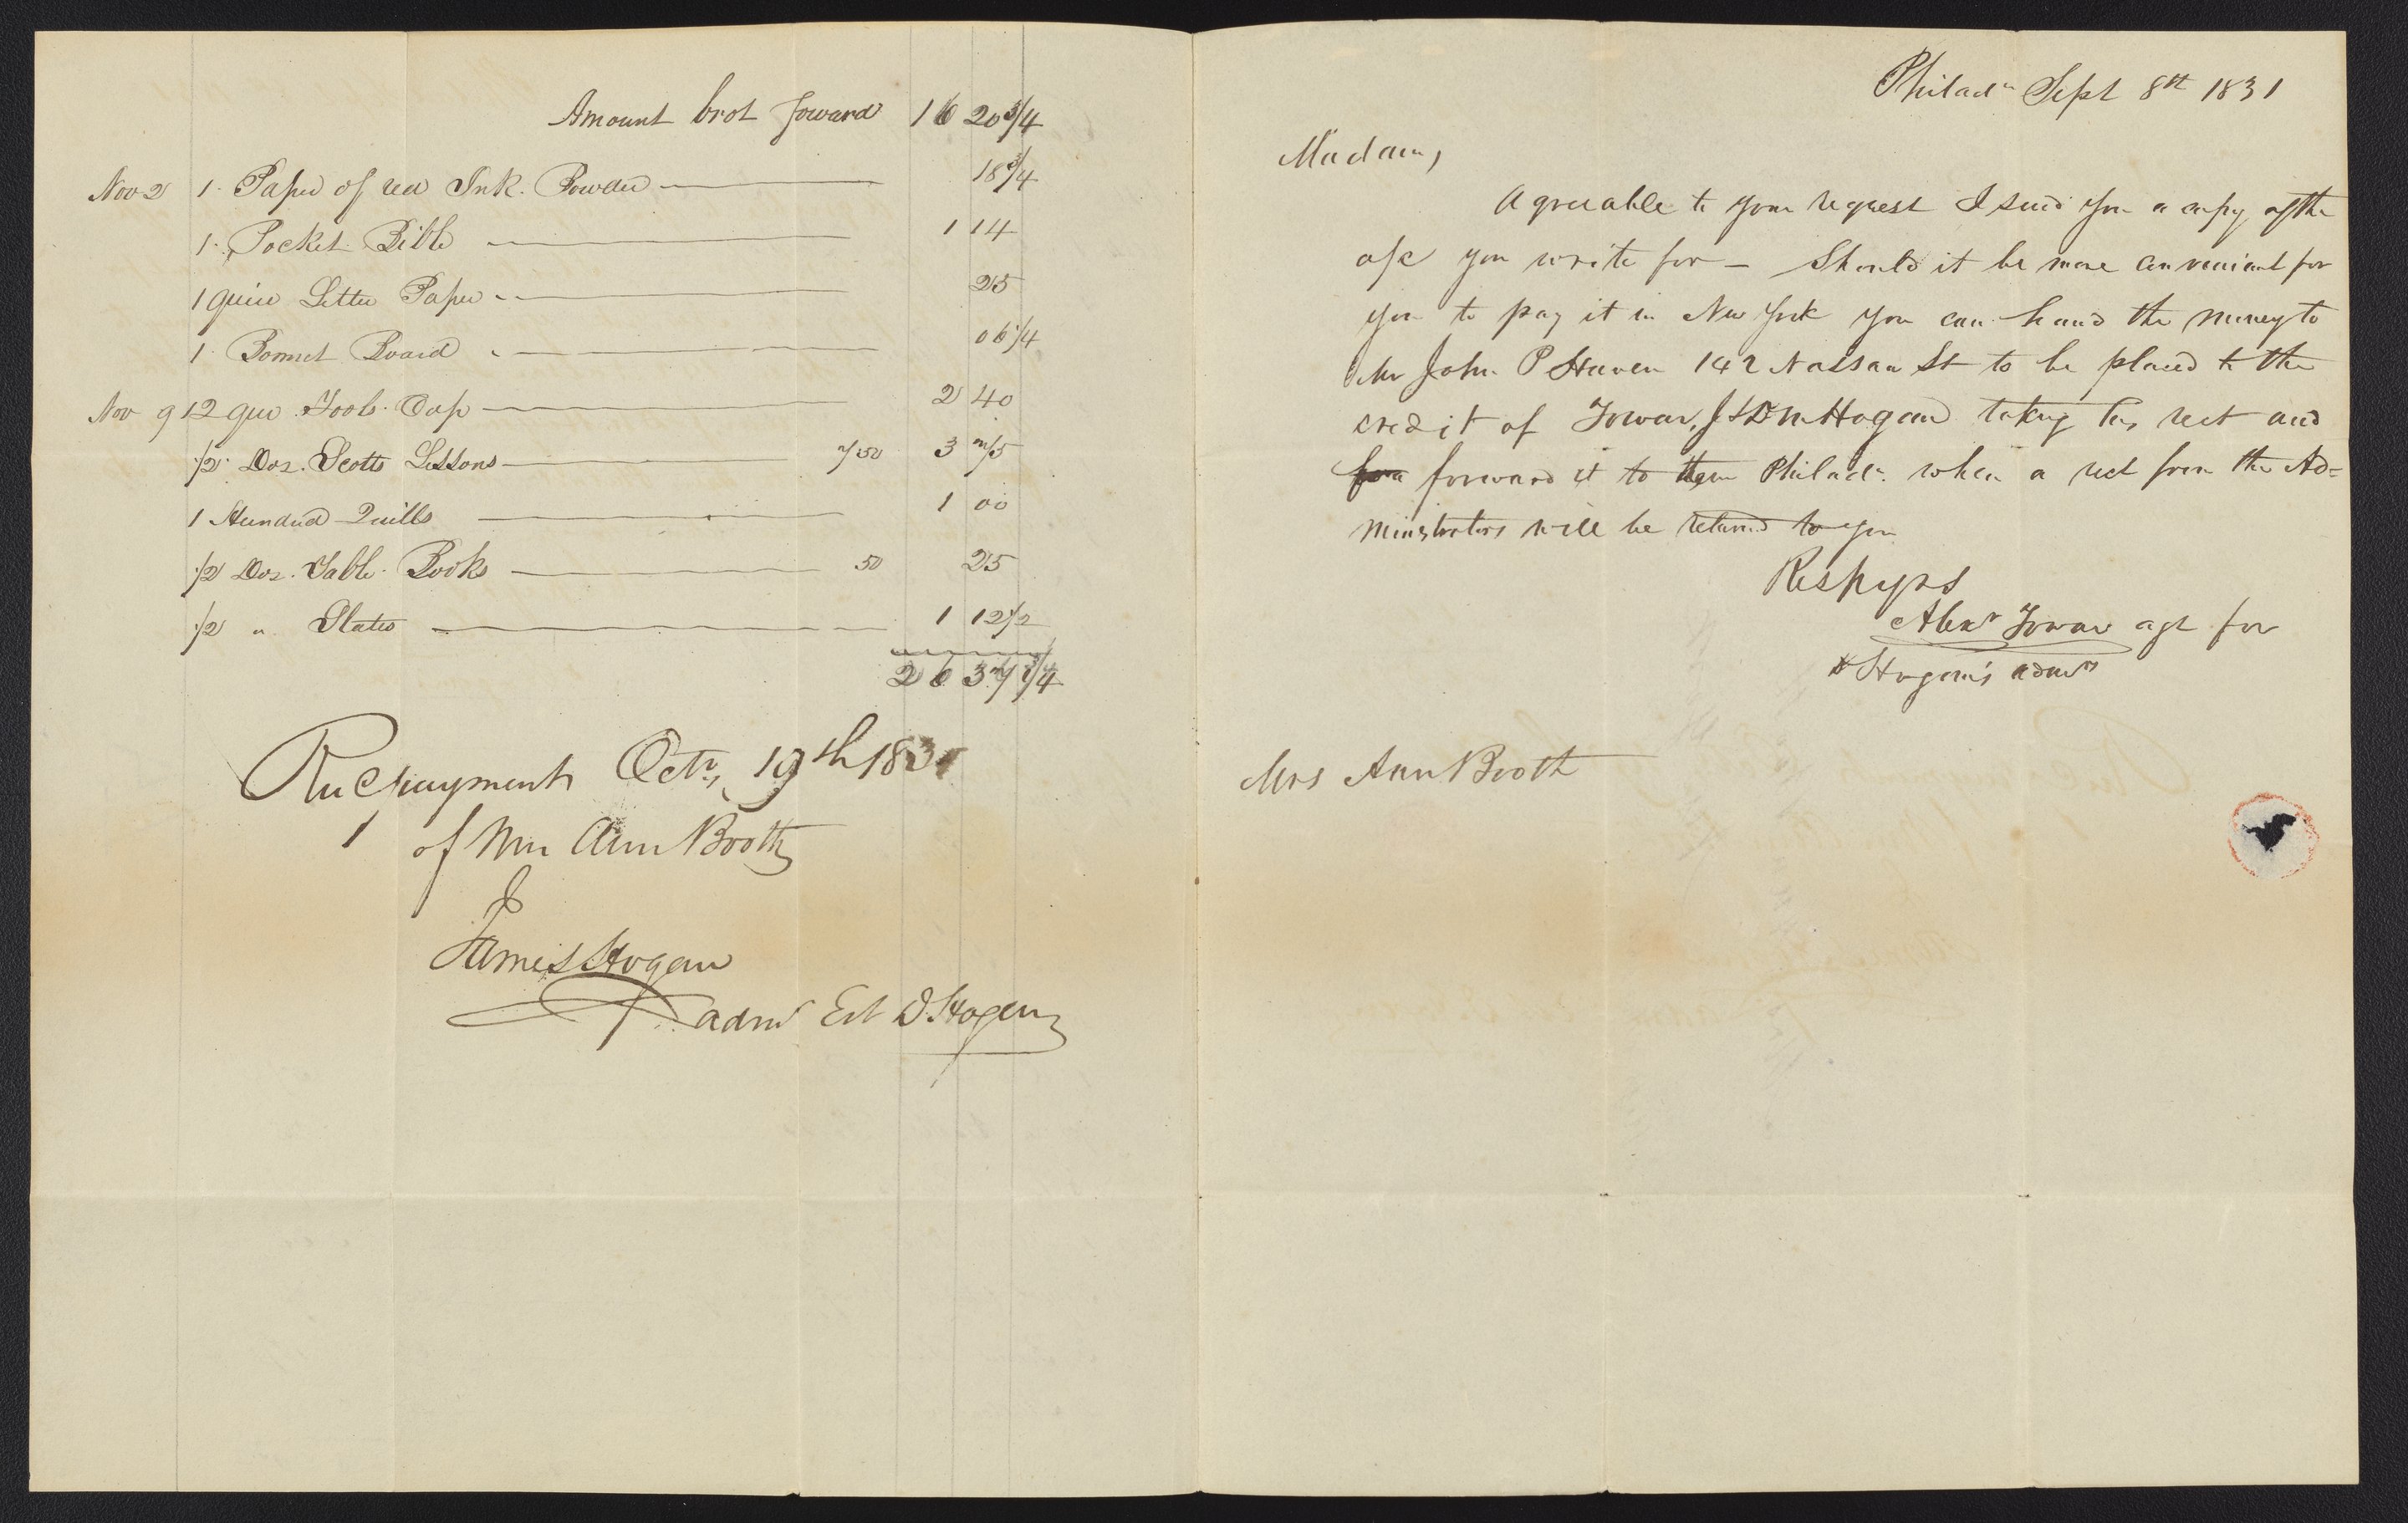 Amount brot Forward 16 20 3/4
Nov 2 1 Paper of red Ink Powder 18 3/4
1 Pocket Bible 1 14
1 quire Letter Paper 25
1 Bonnet Board 06 1/4
Nov 9 12 qui Fools Cap 2 40
1/2 Doz. Scotts Lessons 7 50 3 75
1 Hundred Quills 1 00
1/2 Doz. Table Books 50 25
1/2 " Slates 1 12 1/2
26 37 1/4
Rec payment Octr, 19th 1831
of Mrs Ann Booth
James Hogan
admr Est D. Hogan
Philada Sept 8th 1831
Madam,
Agreeable to your request I send you a copy of the
a/c you write for — Should it be more convenient for
you to pay it in New York you can hand the money to
Mr John P Haven 142 Nassau St to be placed to the
credit of Towar, J & D M Hogan taking his rect and
forward it to them Philada. when a rect from the Ad=
ministrators will be returned to you
Respy yrs
Alexr Towar agt for
Hogan's admrs
Mrs Ann Booth